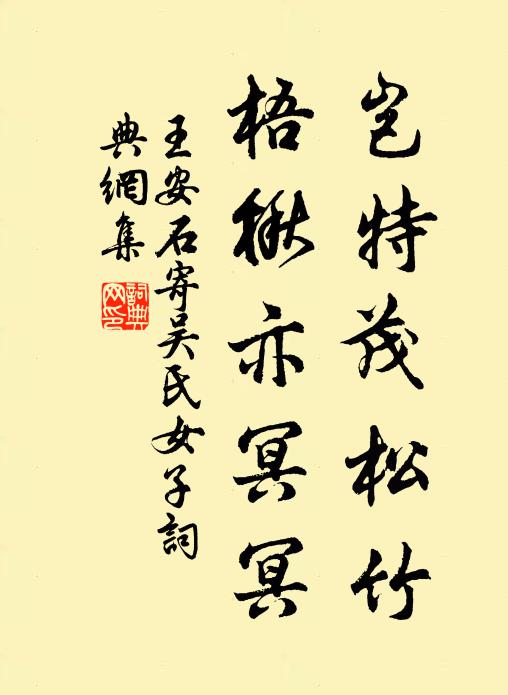 豈特茂松竹
梧楸亦冥冥
王安石寄吴氏女子詞
典網集
詞典网印